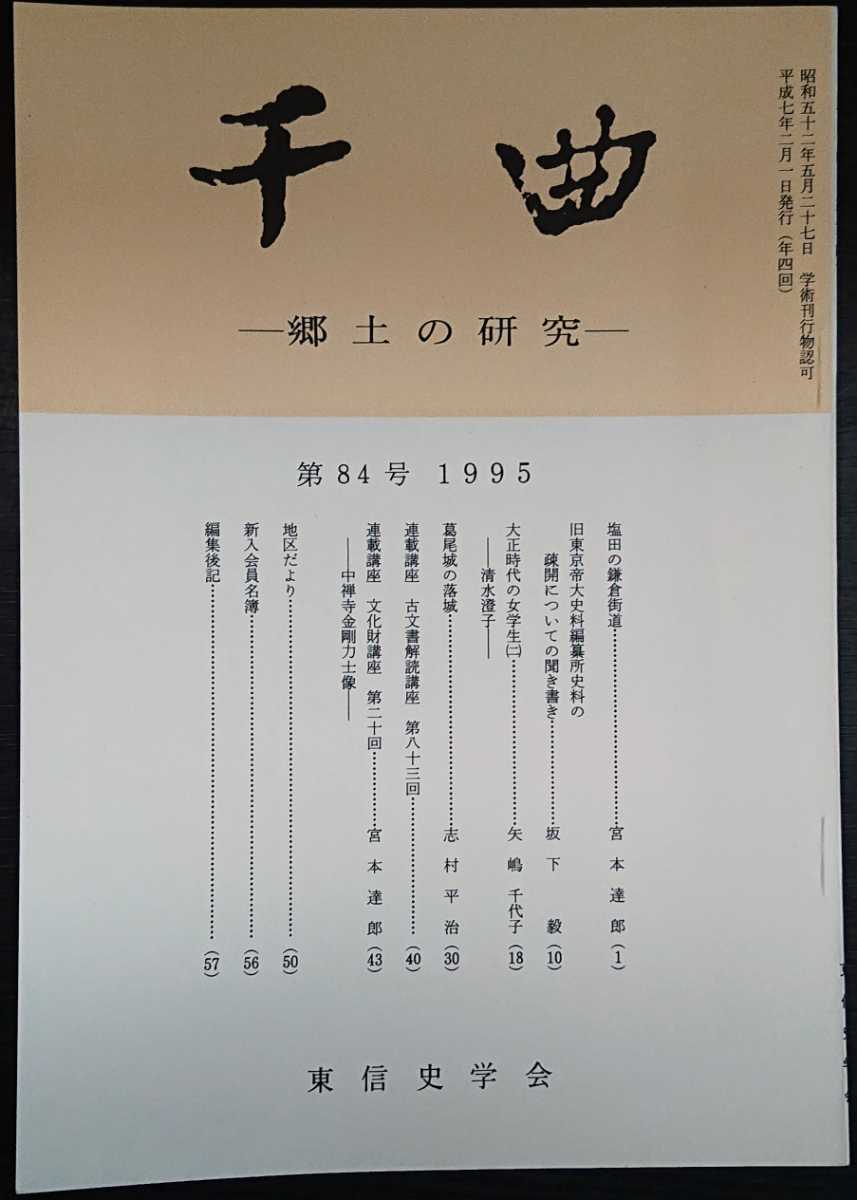 昭和五十二年五月二十七日 学術刊行物認可
平成七年二月一日発行(年四回)
千曲
―郷土の研究―
第84号 1995
塩田の鎌倉街道…………宮本達郎(1)
旧東京帝大史料編纂所史料の
疎開についての聞き書き…………坂下 毅(10)
大正時代の女学生(二)…………矢嶋千代子(18)
――清水澄子――
葛尾城の落城…………志村平治(30)
連載講座 古文書解読講座 第八十三回…………(40)
連載講座 文化財講座 第二十回…………宮本達郎(43)
――中禅寺金剛力士像――
地区だより…………(50)
新入会員名簿…………(56)
編集後記…………(57)
東信史学会